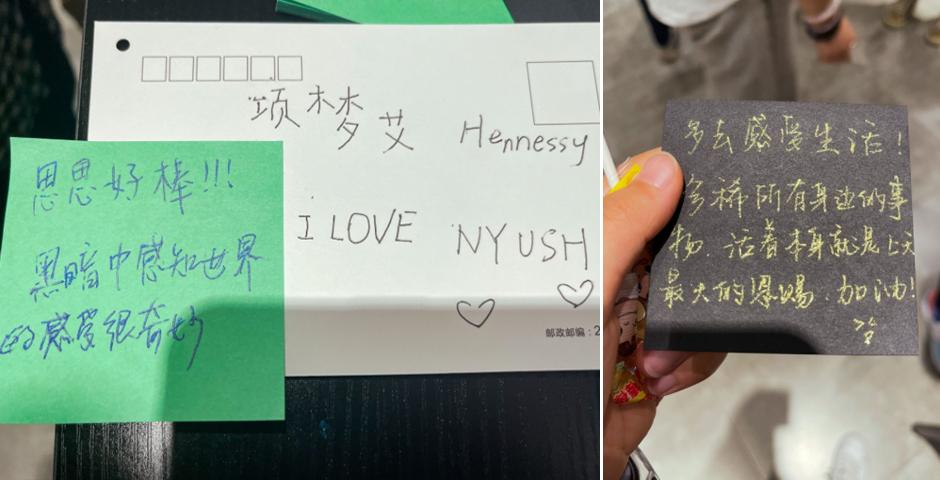 思思好棒!!!
黑暗中感知世界
的感受很奇妙
颂梦艾 Hennessy
I LOVE NYUSH
邮政邮编：2
多去感受生活！
多稀所有身边的事
物. 活着本身就是上天
最大的恩赐. 加油!